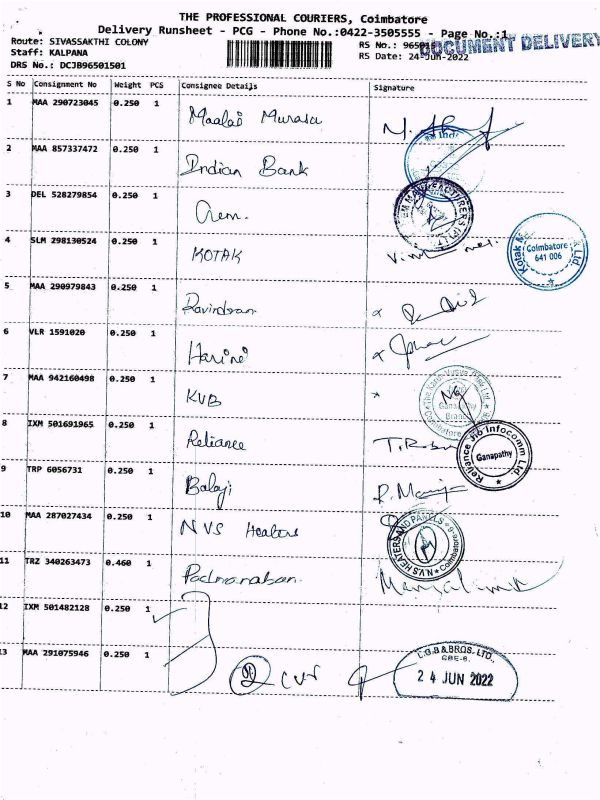 THE PROFESSIONAL COURIERS, Coimbatore
Delivery Runsheet - PCG - Phone No.:0422-3505555 - Page No.:1
DOCUMENT DELIVERY
Route: SIVASSAKTHI COLONY RS No.:
Staff: KALPANA RS Date: 24-Jun-2022
DRS No.: DCJB96501501
S No Consignment No Weight PCS Consignee Details Signature
1 MAA 290723045 0.250 1 Maalai Murasu
2 MAA 857337472 0.250 1 Indian Bank
3 DEL 528279854 0.250 1
4 SLM 298130524 0.250 1 KOTAK
Coimbatore
641 006
5 MAA 290979843 0.250 1 Ravindran
6 VLR 1591020 0.250 1 Harini
7 MAA 942160498 0.250 1 KVB
Ganapathy
Branch
8 IXM 501691965 0.250 1 Reliance
Reliance Jio Infocomm Ltd.
Ganapathy
9 TRP 6056731 0.250 1 Balaji
10 MAA 287027434 0.250 1 NVS Heaters
N.V.S HEATERS AND PANELS
11 TRZ 340263473 0.460 1 Padmanaban
12 IXM 501482128 0.250 1
13 MAA 291075946 0.250 1
L.G.B & BROS. LTD.,
CBE-6.
24 JUN 2022